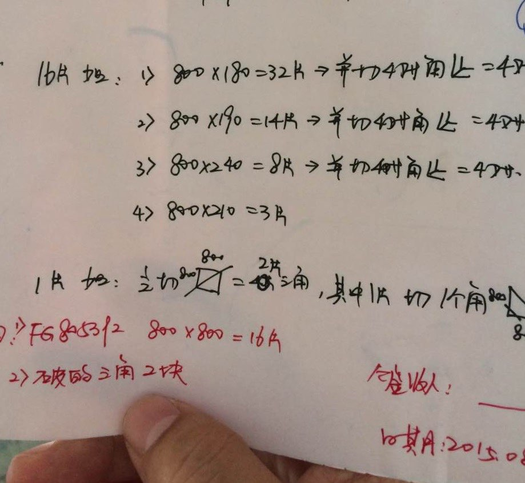 16片 加: 1> 800×180=32片→并切4对角
2> 800×190=14片→并切4对角
3> 800×240=8片→并切4对角
4> 800×210=3片
1片 加: 1/2切 800 800 = 2片三角, 其中1片 切1个角 800
1> FG805312 800×800=16片
2> 破的三角2块
签收人:
日期:2015.08